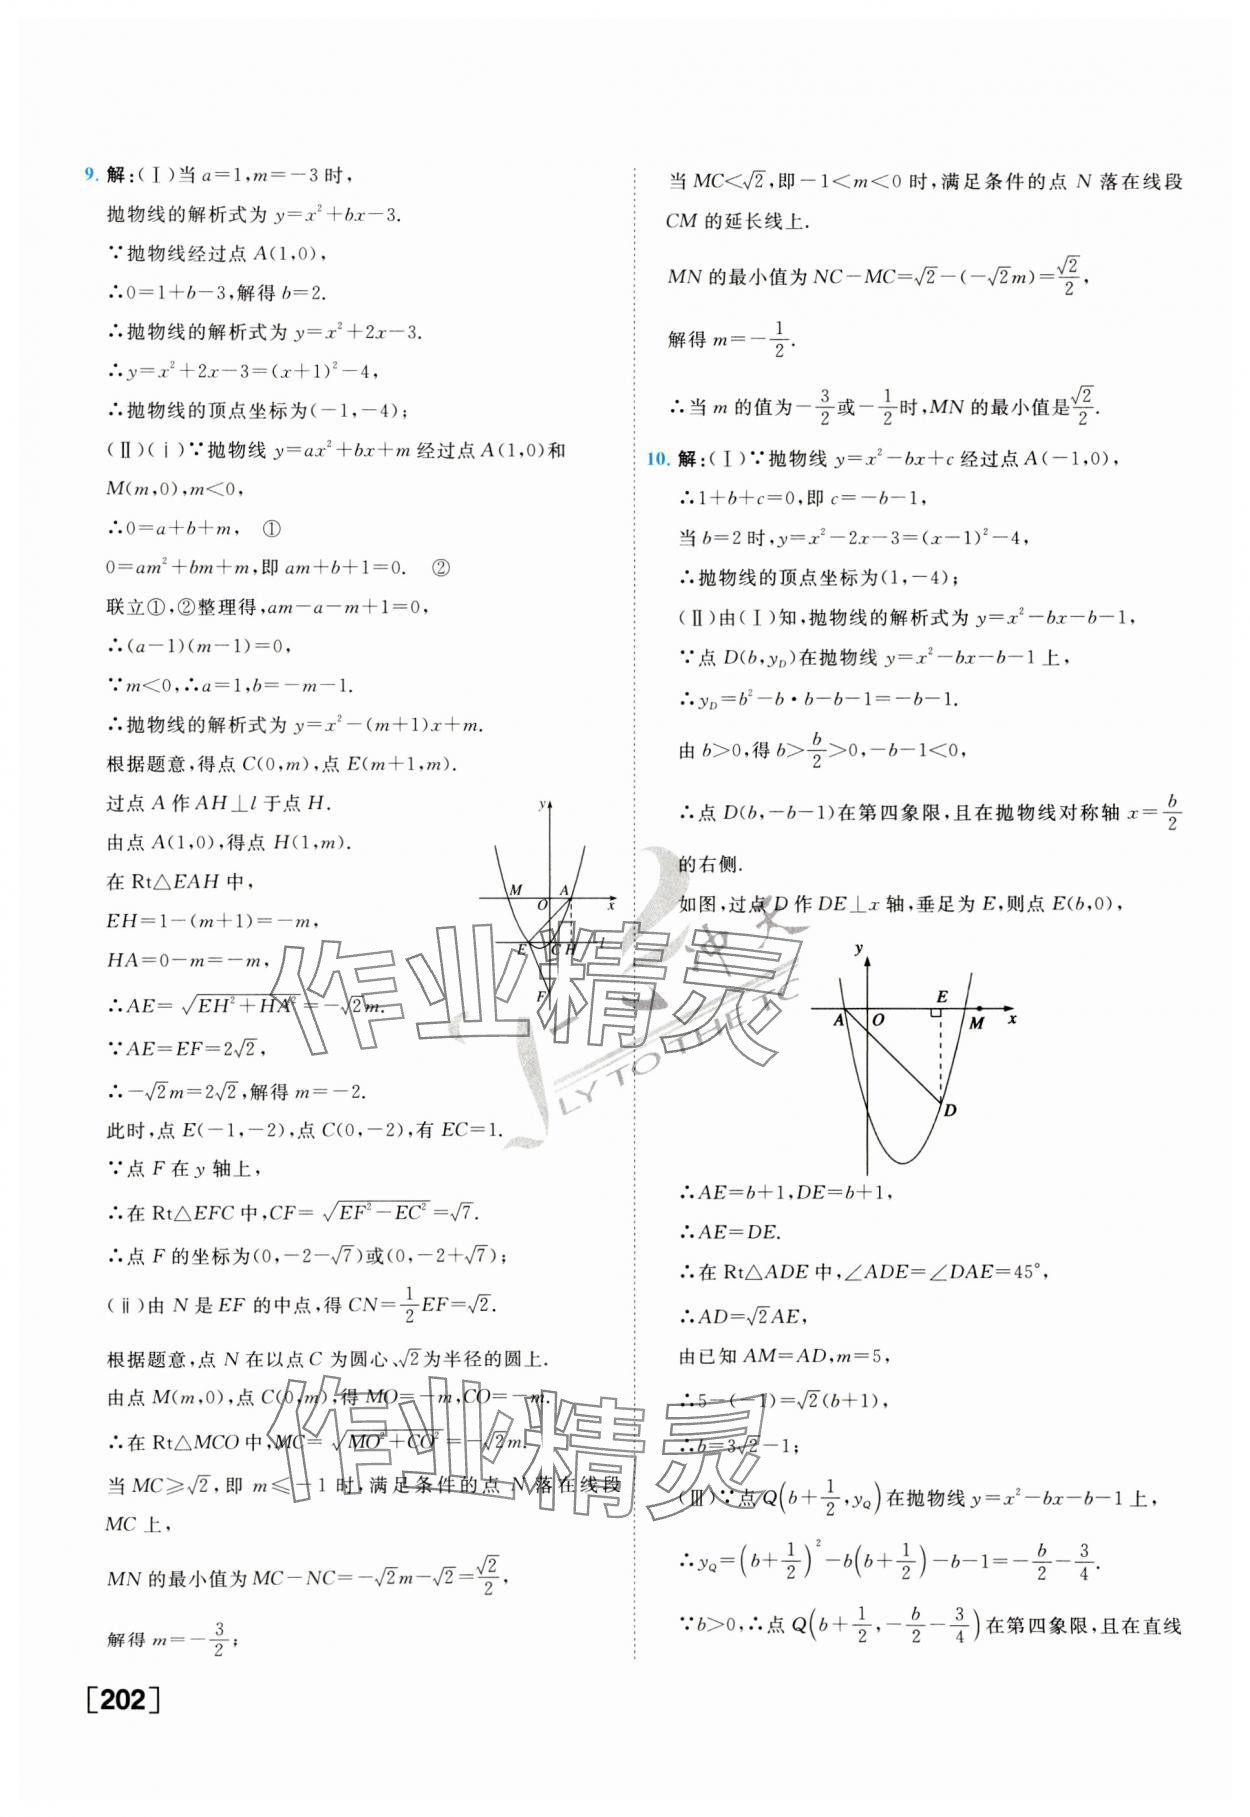 9. 解:(Ⅰ)当 a=1,m=-3 时,
抛物线的解析式为 y=x²+bx-3.
∵抛物线经过点 A(1,0),
∴0=1+b-3,解得 b=2.
∴抛物线的解析式为 y=x²+2x-3.
∴y=x²+2x-3=(x+1)²-4,
∴抛物线的顶点坐标为(-1,-4);
(Ⅱ)(ⅰ)∵抛物线 y=ax²+bx+m 经过点 A(1,0)和
M(m,0),m<0,
∴0=a+b+m, ①
0=am²+bm+m,即 am+b+1=0. ②
联立①,②整理得,am-a-m+1=0,
∴(a-1)(m-1)=0,
∵m<0,∴a=1,b=-m-1.
∴抛物线的解析式为 y=x²-(m+1)x+m.
根据题意,得点 C(0,m),点 E(m+1,m).
过点 A 作 AH⊥l 于点 H.
由点 A(1,0),得点 H(1,m).
在 Rt△EAH 中,
EH=1-(m+1)=-m,
HA=0-m=-m,
∴AE=√(EH²+HA²)=-√2m.
∵AE=EF=2√2,
∴-√2m=2√2,解得 m=-2.
此时,点 E(-1,-2),点 C(0,-2),有 EC=1.
∵点 F 在 y 轴上,
∴在 Rt△EFC 中,CF=√(EF²-EC²)=√7.
∴点 F 的坐标为(0,-2-√7)或(0,-2+√7);
(ⅱ)由 N 是 EF 的中点,得 CN=1/2EF=√2.
根据题意,点 N 在以点 C 为圆心、√2为半径的圆上.
由点 M(m,0),点 C(0,m),得 MO=-m,CO=-m.
∴在 Rt△MCO 中,MC=√(MO²+CO²)=-√2m.
当 MC≥√2,即 m≤-1 时,满足条件的点 N 落在线段
MC 上,
MN 的最小值为 MC-NC=-√2m-√2=√2/2,
解得 m=-3/2;
y
M
A
O
x
E
C
H
l
F
[202]
当 MC<√2,即-1<m<0 时,满足条件的点 N 落在线段
CM 的延长线上.
MN 的最小值为 NC-MC=√2-(-√2m)=√2/2,
解得 m=-1/2.
∴当 m 的值为-3/2或-1/2时,MN 的最小值是√2/2.
10. 解:(Ⅰ)∵抛物线 y=x²-bx+c 经过点 A(-1,0),
∴1+b+c=0,即 c=-b-1,
当 b=2 时,y=x²-2x-3=(x-1)²-4,
∴抛物线的顶点坐标为(1,-4);
(Ⅱ)由(Ⅰ)知,抛物线的解析式为 y=x²-bx-b-1,
∵点 D(b,y_D)在抛物线 y=x²-bx-b-1 上,
∴y_D=b²-b·b-b-1=-b-1.
由 b>0,得 b>b/2>0,-b-1<0,
∴点 D(b,-b-1)在第四象限,且在抛物线对称轴 x=b/2
的右侧.
如图,过点 D 作 DE⊥x 轴,垂足为 E,则点 E(b,0),
y
E
A
O
M
x
D
∴AE=b+1,DE=b+1,
∴AE=DE.
∴在 Rt△ADE 中,∠ADE=∠DAE=45°,
∴AD=√2AE,
由已知 AM=AD,m=5,
∴5-(-1)=√2(b+1),
∴b=3√2-1;
(Ⅲ)∵点 Q(b+1/2,y_Q)在抛物线 y=x²-bx-b-1 上,
∴y_Q=(b+1/2)²-b(b+1/2)-b-1=-b/2-3/4.
∵b>0,∴点 Q(b+1/2,-b/2-3/4)在第四象限,且在直线
作业精灵
作业精灵